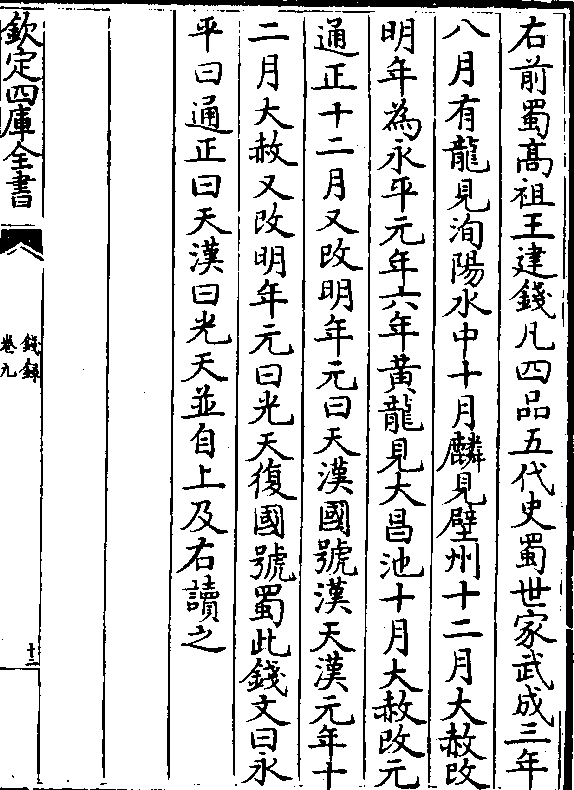 右前蜀髙祖王建錢凡四品五代史蜀世家武成三年
八月有龍見洵陽水中十月麟見壁州十二月大赦改
明年為永平元年六年黄龍見大昌池十月大赦改元
通正十二月又改明年元曰天漢國號漢天漢元年十
二月大赦又改明年元曰光天復國號蜀此錢文曰永
平曰通正曰天漢曰光天並自上及右讀之
欽定四庫全書
錢録
卷九
十二